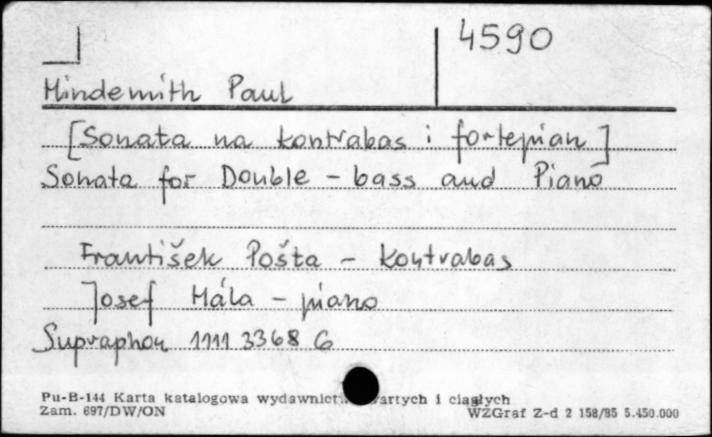 4590
Hindemith Paul
[Sonata na kontrabas i fortepian]
Sonata for Double - bass and Piano
František Pošta - kontrabas
Josef Hála - piano
Supraphon 1111 3368 G
Pu-B-144 Karta katalogowa wydawnictw zwartych i ciągłych
Zam. 697/DW/ON WZGraf Z-d 2 158/85 5.450.000